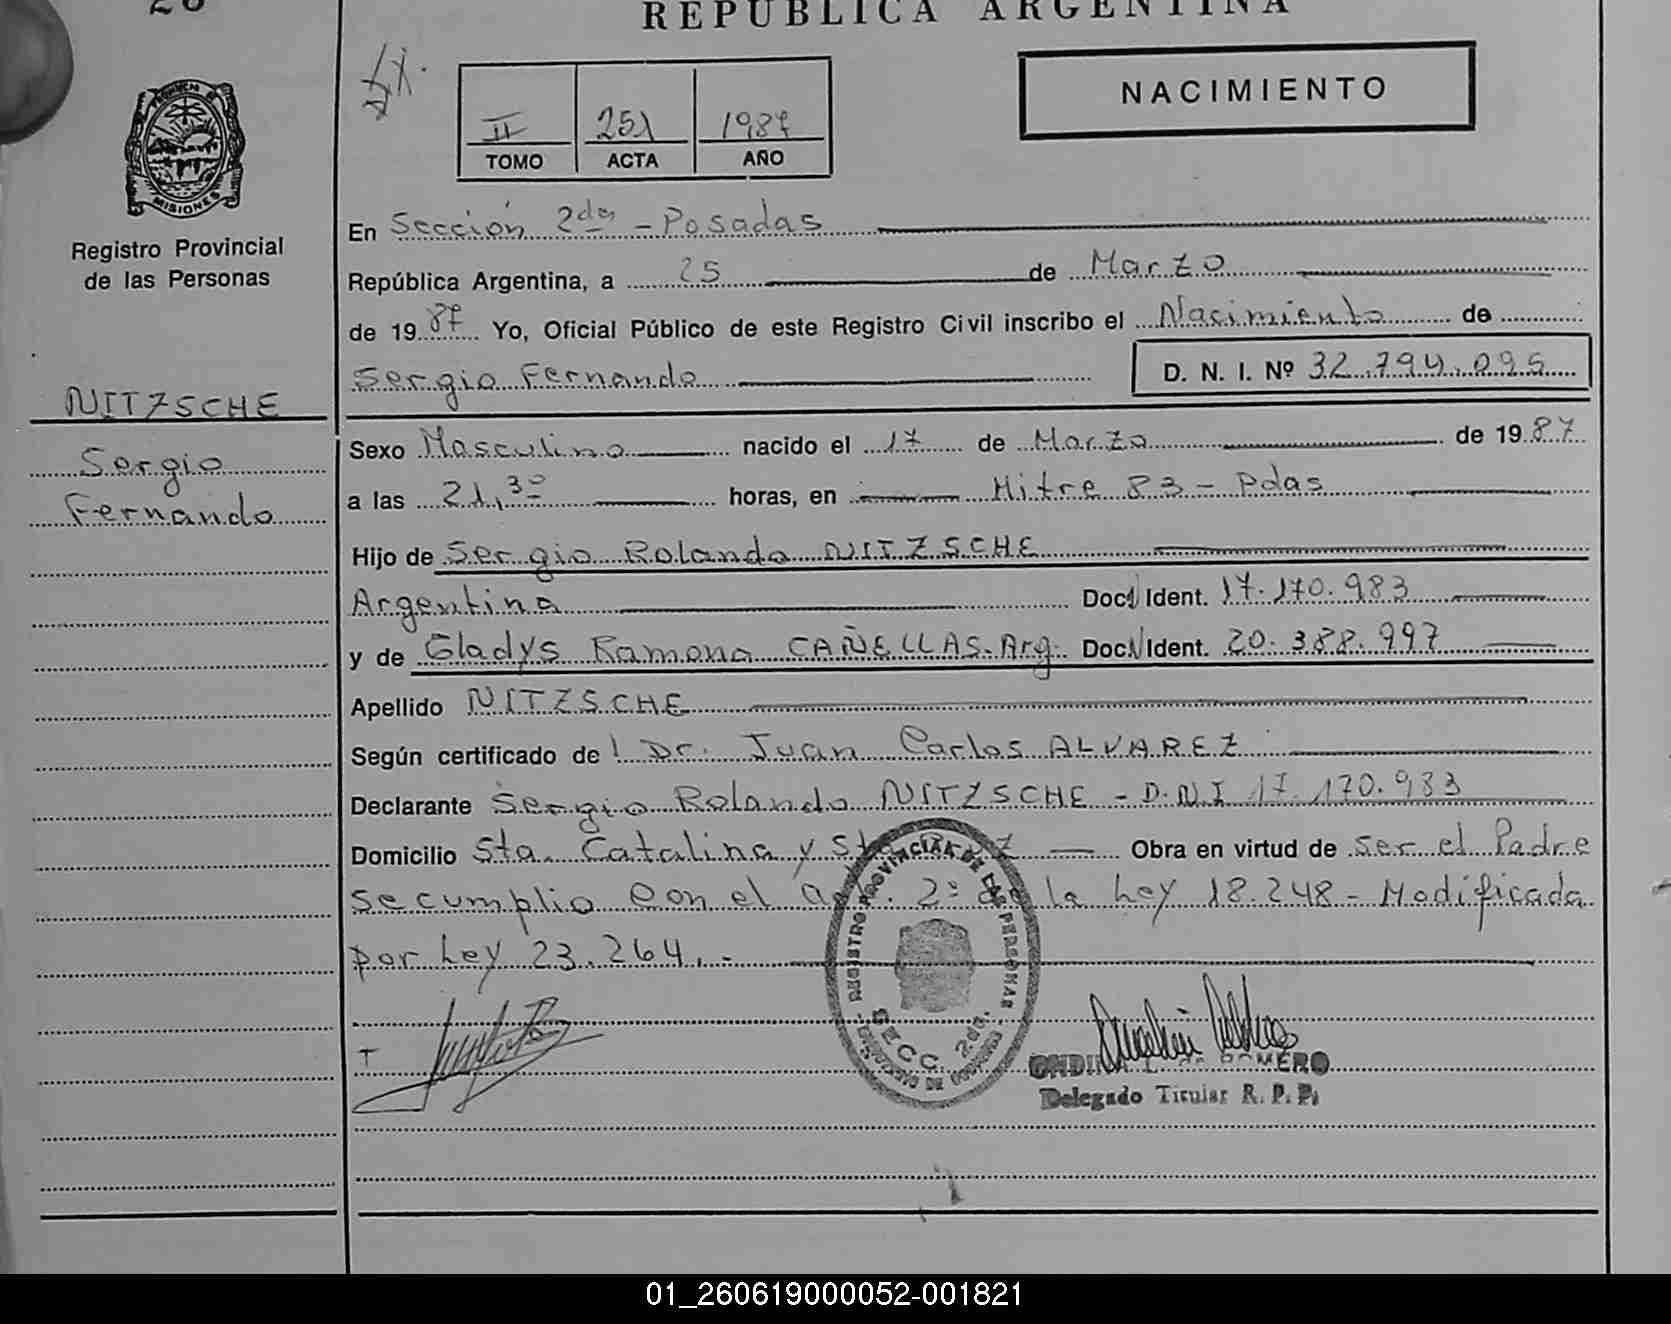 REPUBLICA ARGENTINA
PROVINCIA DE
MISIONES
Registro Provincial
de las Personas
II 251 1987
TOMO ACTA AÑO
NACIMIENTO
NITZSCHE
Sergio
Fernando
En Sección 2da - Posadas
República Argentina, a 25 de Marzo
de 1987 Yo, Oficial Público de este Registro Civil inscribo el Nacimiento de
Sergio Fernando D. N. I. Nº 32.794.095
Sexo Masculino nacido el 17 de Marzo de 1987
a las 21,30 horas, en Mitre 83 - Pdas
Hijo de Sergio Rolando NITZSCHE
Argentina Doc. Ident. 17.170.983
y de Gladys Ramona CAÑELLAS. Arg. Doc. Ident. 20.388.997
Apellido NITZSCHE
Según certificado de Dr. Juan Carlos ALVAREZ
Declarante Sergio Rolando NITZSCHE - D.N.I 17.170.983
Domicilio Sta. Catalina y Sta Obra en virtud de ser el Padre
se cumplio con el art. 2º de la Ley 18.248 - Modificada
por Ley 23.264.-
REGISTRO PROVINCIAL DE LAS PERSONAS
SECC. 2da.
T
ROMERO
Delegado Titular R. P. P.
01_260619000052-001821